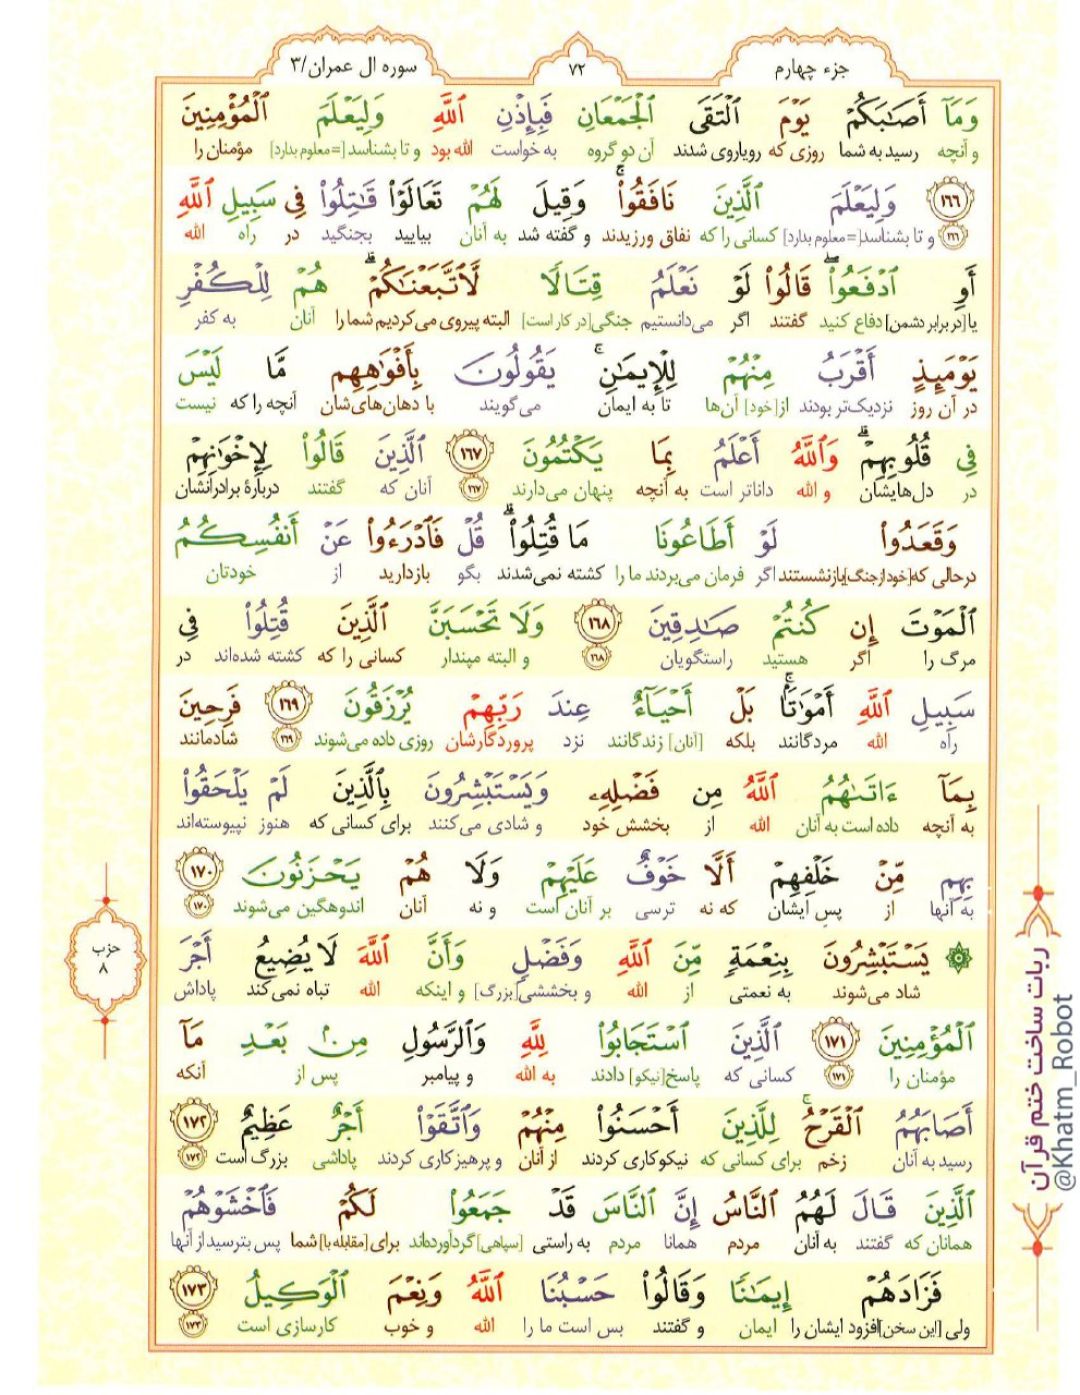 جزء چهارم
۷۲
سوره ال عمران/۳
وَمَآ أَصَٰبَكُمْ يَوْمَ ٱلْتَقَى ٱلْجَمْعَانِ فَبِإِذْنِ ٱللَّهِ وَلِيَعْلَمَ ٱلْمُؤْمِنِينَ
و آنچه رسید به شما روزی که رویاروی شدند آن دو گروه به خواست الله بود و تا بشناسد[=معلوم بدارد] مؤمنان را
۱۶۶ وَلِيَعْلَمَ ٱلَّذِينَ نَافَقُوا۟ ۚ وَقِيلَ لَهُمْ تَعَالَوْا۟ قَٰتِلُوا۟ فِى سَبِيلِ ٱللَّهِ
۱۶۶ و تا بشناسد[=معلوم بدارد] کسانی را که نفاق ورزیدند و گفته شد به آنان بیایید بجنگید در راه الله
أَوِ ٱدْفَعُوا۟ ۖ قَالُوا۟ لَوْ نَعْلَمُ قِتَالًا لَّٱتَّبَعْنَٰكُمْ ۗ هُمْ لِلْكُفْرِ
یا[در برابر دشمن] دفاع کنید گفتند اگر می‌دانستیم جنگی[در کار است] البته پیروی می‌کردیم شما را آنان به کفر
يَوْمَئِذٍ أَقْرَبُ مِنْهُمْ لِلْإِيمَٰنِ ۚ يَقُولُونَ بِأَفْوَٰهِهِم مَّا لَيْسَ
در آن روز نزدیک‌تر بودند از[خود] آن‌ها تا به ایمان می‌گویند با دهان‌های‌شان آنچه را که نیست
فِى قُلُوبِهِمْ ۗ وَٱللَّهُ أَعْلَمُ بِمَا يَكْتُمُونَ ۱۶۷ ٱلَّذِينَ قَالُوا۟ لِإِخْوَٰنِهِمْ
در دل‌هایشان و الله داناتر است به آنچه پنهان می‌دارند ۱۶۷ آنان که گفتند دربارهٔ برادرانشان
وَقَعَدُوا۟ لَوْ أَطَاعُونَا مَا قُتِلُوا۟ ۗ قُلْ فَٱدْرَءُوا۟ عَنْ أَنفُسِكُمُ
درحالی که[خود از جنگ]بازنشستند اگر فرمان می‌بردند ما را کشته نمی‌شدند بگو بازدارید از خودتان
ٱلْمَوْتَ إِن كُنتُمْ صَٰدِقِينَ ۱۶۸ وَلَا تَحْسَبَنَّ ٱلَّذِينَ قُتِلُوا۟ فِى
مرگ را اگر هستید راستگویان ۱۶۸ و البته مپندار کسانی را که کشته شده‌اند در
سَبِيلِ ٱللَّهِ أَمْوَٰتًۢا ۚ بَلْ أَحْيَآءٌ عِندَ رَبِّهِمْ يُرْزَقُونَ ۱۶۹ فَرِحِينَ
راه الله مردگانند بلکه [آنان] زندگانند نزد پروردگارشان روزی داده می‌شوند ۱۶۹ شادمانند
بِمَآ ءَاتَىٰهُمُ ٱللَّهُ مِن فَضْلِهِۦ وَيَسْتَبْشِرُونَ بِٱلَّذِينَ لَمْ يَلْحَقُوا۟
به آنچه داده است به آنان الله از بخشش خود و شادی می‌کنند برای کسانی که هنوز نپیوسته‌اند
بِهِم مِّنْ خَلْفِهِمْ أَلَّا خَوْفٌ عَلَيْهِمْ وَلَا هُمْ يَحْزَنُونَ ۱۷۰
به آنها از پس ایشان که نه ترسی بر آنان است و نه آنان اندوهگین می‌شوند ۱۷۰
يَسْتَبْشِرُونَ بِنِعْمَةٍ مِّنَ ٱللَّهِ وَفَضْلٍ وَأَنَّ ٱللَّهَ لَا يُضِيعُ أَجْرَ
شاد می‌شوند به نعمتی از الله و بخششی[بزرگ] و اینکه الله تباه نمی‌کند پاداش
حزب
۸
ٱلْمُؤْمِنِينَ ۱۷۱ ٱلَّذِينَ ٱسْتَجَابُوا۟ لِلَّهِ وَٱلرَّسُولِ مِنۢ بَعْدِ مَآ
مؤمنان را ۱۷۱ کسانی که پاسخ[نیکو] دادند به الله و پیامبر پس از آنکه
أَصَابَهُمُ ٱلْقَرْحُ ۚ لِلَّذِينَ أَحْسَنُوا۟ مِنْهُمْ وَٱتَّقَوْا۟ أَجْرٌ عَظِيمٌ ۱۷۲
رسید به آنان زخم برای کسانی که نیکوکاری کردند از آنان و پرهیزکاری کردند پاداشی بزرگ است ۱۷۲
ٱلَّذِينَ قَالَ لَهُمُ ٱلنَّاسُ إِنَّ ٱلنَّاسَ قَدْ جَمَعُوا۟ لَكُمْ فَٱخْشَوْهُمْ
همانان که گفتند به آنان مردم همانا مردم به راستی [سپاهی] گردآورده‌اند برای[مقابله با] شما پس بترسید از آنها
فَزَادَهُمْ إِيمَٰنًا وَقَالُوا۟ حَسْبُنَا ٱللَّهُ وَنِعْمَ ٱلْوَكِيلُ ۱۷۳
ولی [این سخن]افزود ایشان را ایمان و گفتند بس است ما را الله و خوب کارسازی است ۱۷۳
ربات ساخت ختم قرآن
@Khatm_Robot